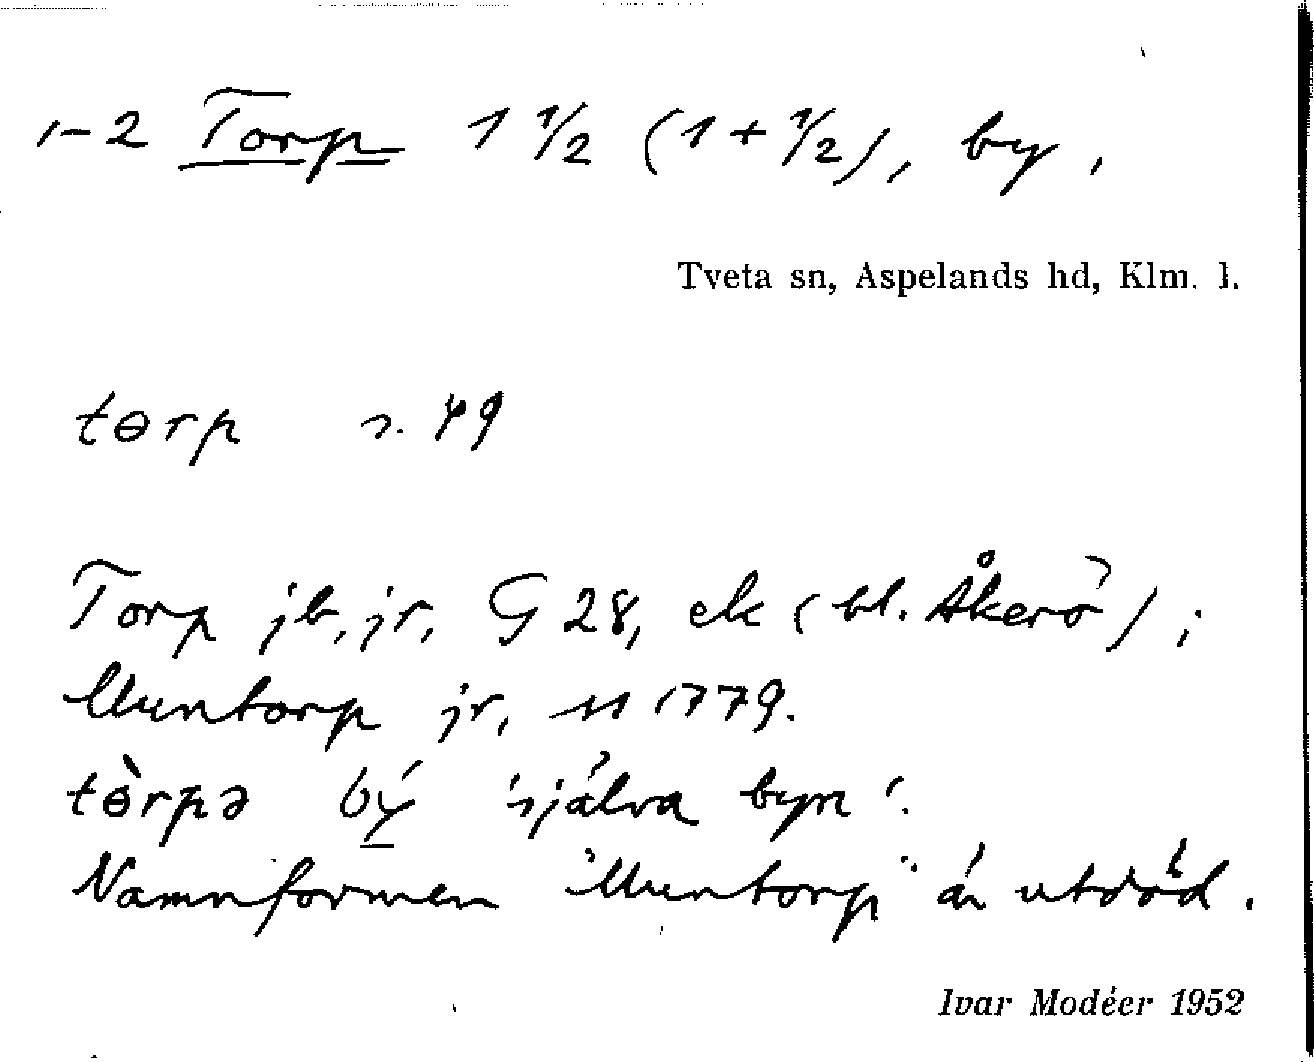 1-2 Torp 1 1/2 (1 + 1/2), by,
Tveta sn, Aspelands hd, Klm. l.
tɵrp s. 49
Torp jb, jr, G 28, ek (bl. Åkerö);
Muntorp jr, 1779.
tɵ̀rpə bý 'själva byn'.
Namnformen "Muntorp" är utdöd.
Ivar Modéer 1952